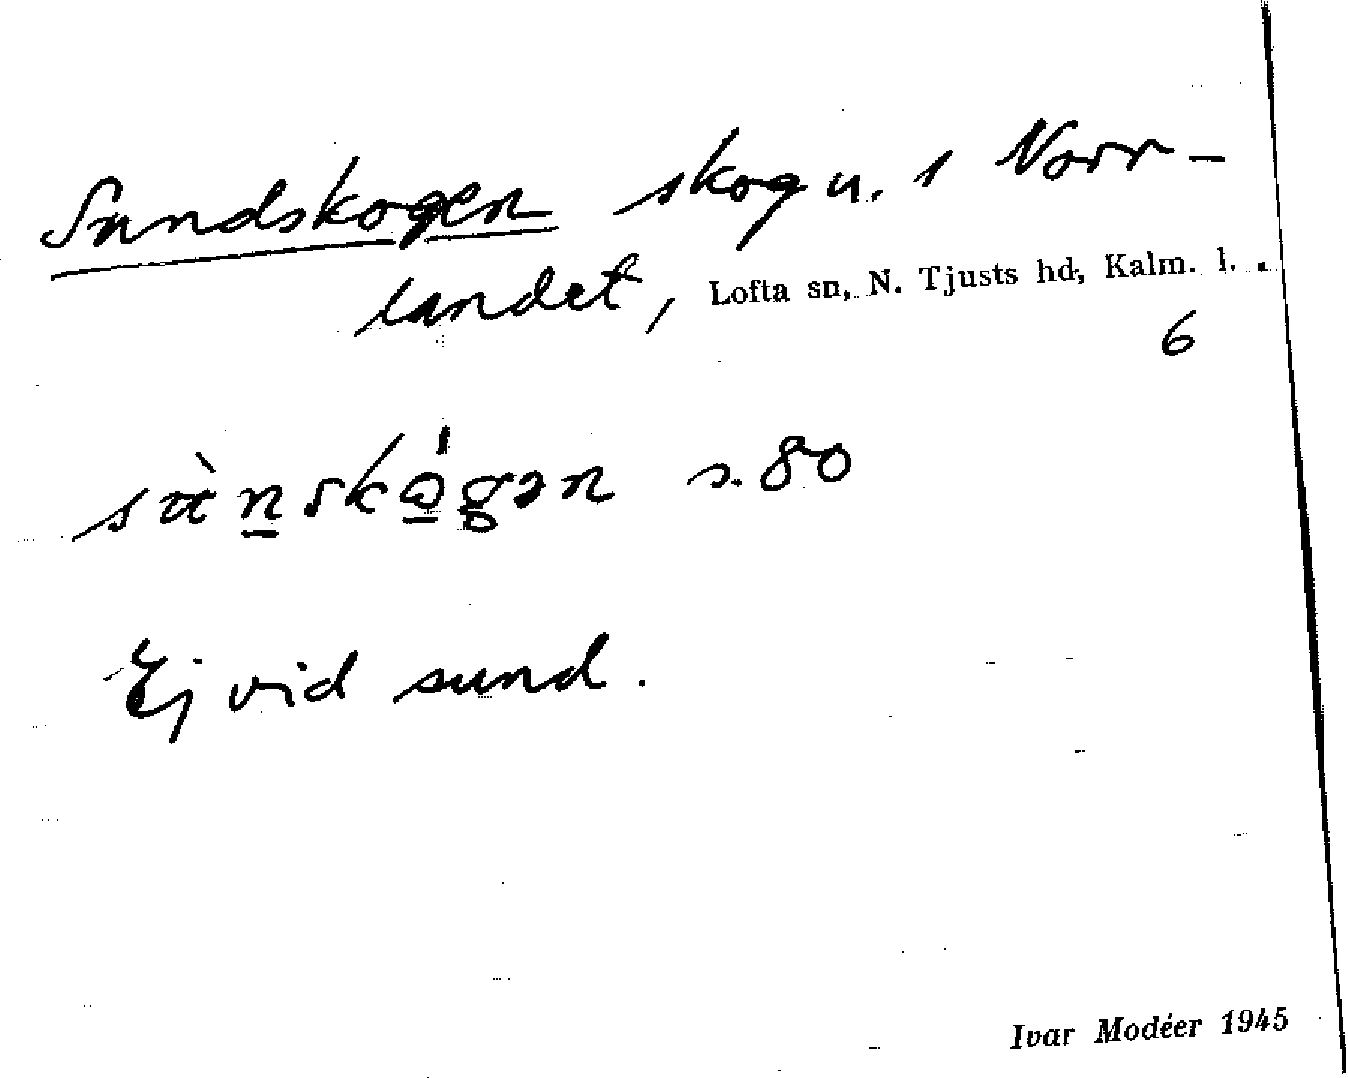 Sundskogen skog u. 1 Norr-
landet, Lofta sn, N. Tjusts hd, Kalm. l.
6
s. 80
Ej vid sund.
Ivar Modéer 1945